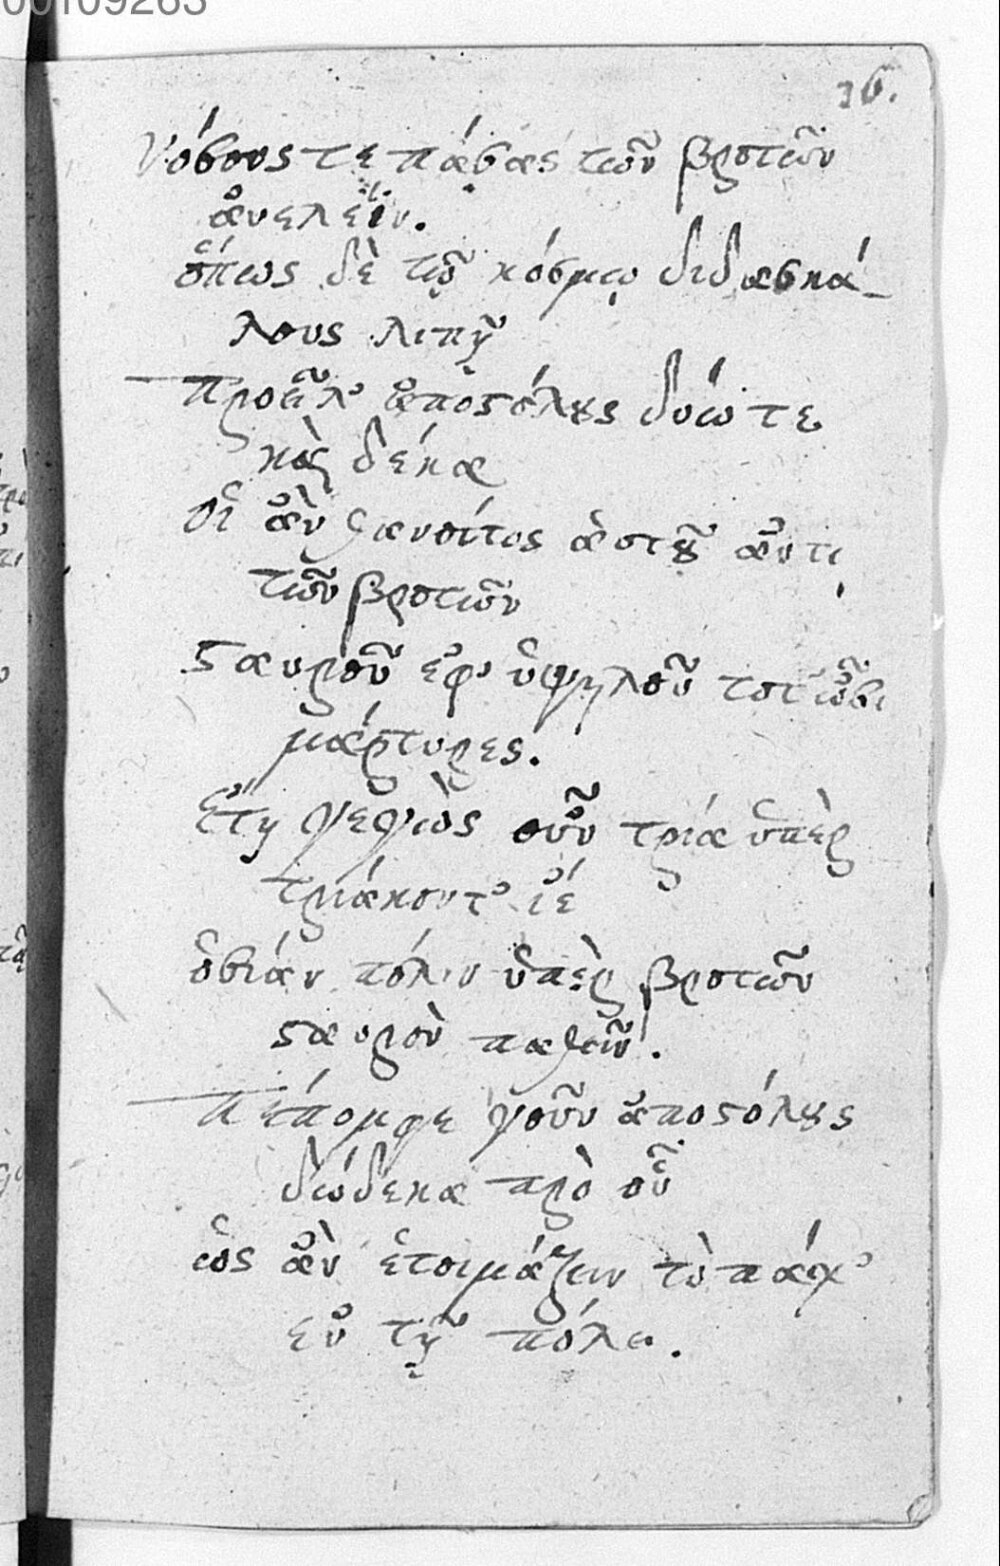 00109263
36.
Νόσους τε πάσας τῶν βροτῶν
ἀνελεῖν.
ὅπως δὲ τῷ κόσμῳ διδασκά-
λους λιπῇ
προεῖλ' ἀποστόλους δυώ τε
καὶ δέκα
οἳ ἂν θανοίτος ἀστοῦ ἀντὶ
τῶν βροτῶν
σταυροῦ ἐφ' ὑψηλοῦ τοτ' ὦσι
μάρτυρες.
Ἔτη γεγὼς οὖν τρία ὑπὲρ
τριάκοντ' ἰέ
ὁσιάν πόλιν ὑπὲρ βροτῶν
σταυρὸν παθεῖν.
πέπομφε γοῦν ἀποστόλους
δώδεκα πρὸ οὗ
ὡς ἂν ἑτοιμάζειν τὸ πάσχ'
ἐν τῇ πόλει.